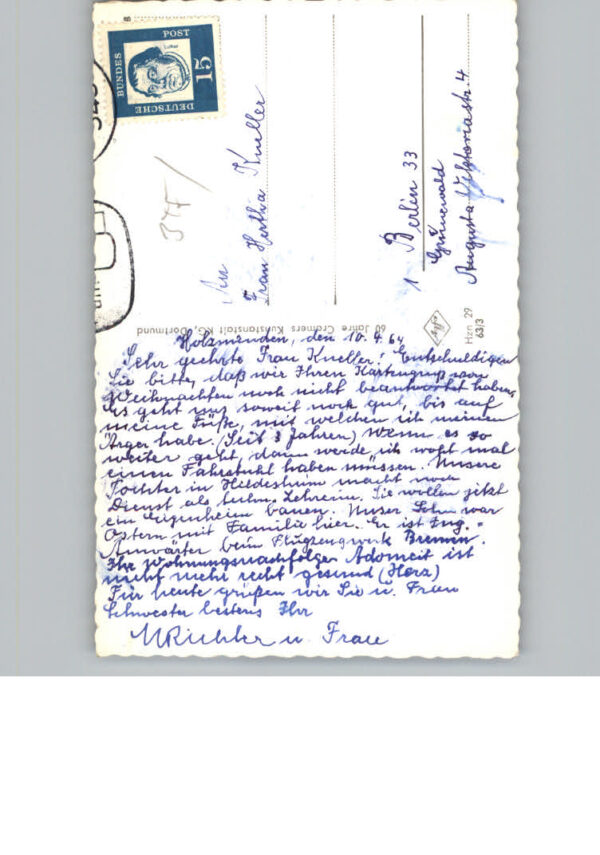 DEUTSCHE
BUNDES
POST
15
An
Frau Hertha Kneller
1 Berlin 33
Grunewald
Augusta Viktoriastr. 4
60 Jahre Cramers Kunstanstalt KG, Dortmund
Hzn 29
63/3
Holzminden, den 10.4.64
Sehr geehrte Frau Kneller! Entschuldigen
Sie bitte, daß wir Ihren Kartengruß von
Weihnachten noch nicht beantwortet haben,
es geht uns soweit noch gut, bis auf
meine Füße, mit welchen ich meinen
Ärger habe. (Seit 3 Jahren) Wenn es so
weiter geht, dann werde ich wohl mal
einen Fahrstuhl haben müssen. Unsere
Tochter in Hildesheim macht noch
Dienst als techn. Lehrerin. Sie wollen jetzt
ein Eigenheim bauen. Unser Sohn war
Ostern mit Familie hier. Er ist Ing.-
Anwärter beim Flugzeugwerk Bremen.
Ihr Wohnungsnachfolger Adomeit ist
nicht mehr recht gesund (Herz)
Für heute grüßen wir Sie u. Frau
Schwester bestens Ihr
u. Frau